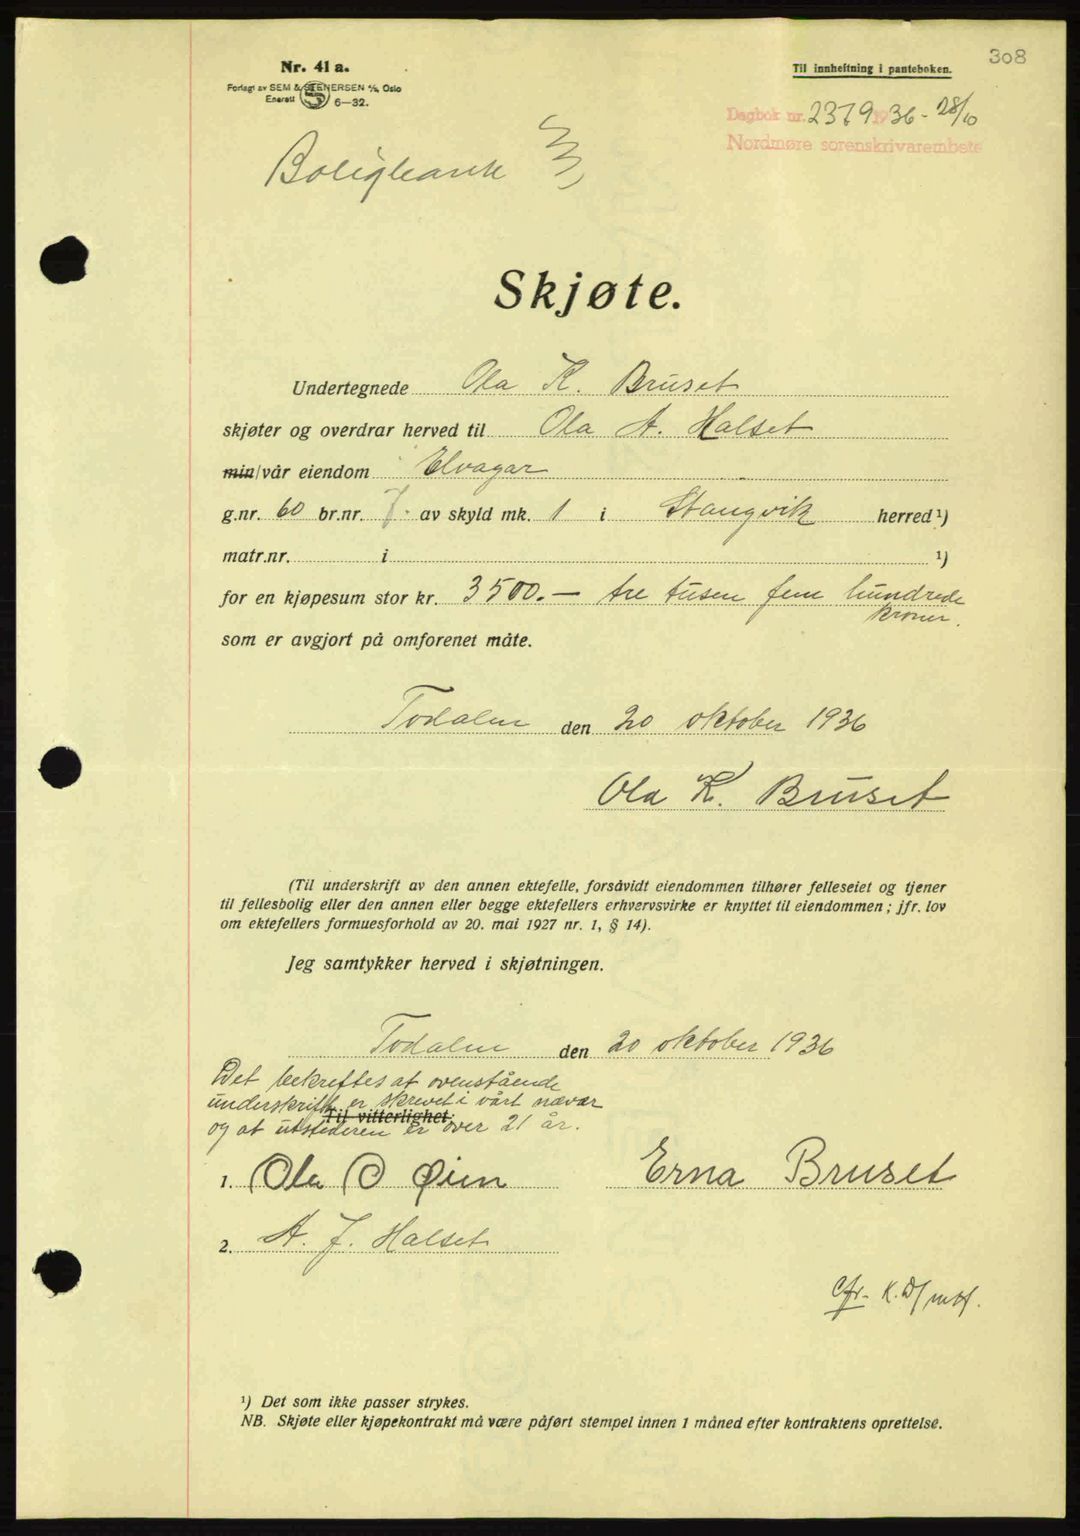 308
Nr. 41 a.
Forlagt av SEM & STENERSEN A/S, Oslo
Enerett S 6—32.
Til innheftning i panteboken.
Dagbok nr. 2379 1936 - 28/10
Nordmøre sorenskrivarembete
Boligbank
Skjøte.
Undertegnede Ola K. Bruset
skjøter og overdrar herved til Ola A. Halset
min/vår eiendom Elvagar
g.nr. 60 br.nr. 7. av skyld mk. 1 i Stangvik herred ¹)
matr.nr. i ¹)
for en kjøpesum stor kr. 3500.— tre tusen fem hundrede
kroner.
som er avgjort på omforenet måte.
Todalen den 20 oktober 1936
Ola K. Bruset
(Til underskrift av den annen ektefelle, forsåvidt eiendommen tilhører felleseiet og tjener
til fellesbolig eller den annen eller begge ektefellers erhvervsvirke er knyttet til eiendommen ; jfr. lov
om ektefellers formuesforhold av 20. mai 1927 nr. 1, § 14).
Jeg samtykker herved i skjøtningen.
Todalen den 20 oktober 1936
Det bekreftes at ovenstående
underskrift er skrevet i vårt nævær
Til vitterlighet:
og at utstederen er over 21 år.
1. Ola O Øien Erna Bruset
2. A. J. Halset
Cfr. K.D/
¹) Det som ikke passer strykes.
NB. Skjøte eller kjøpekontrakt må være påført stempel innen 1 måned efter kontraktens oprettelse.